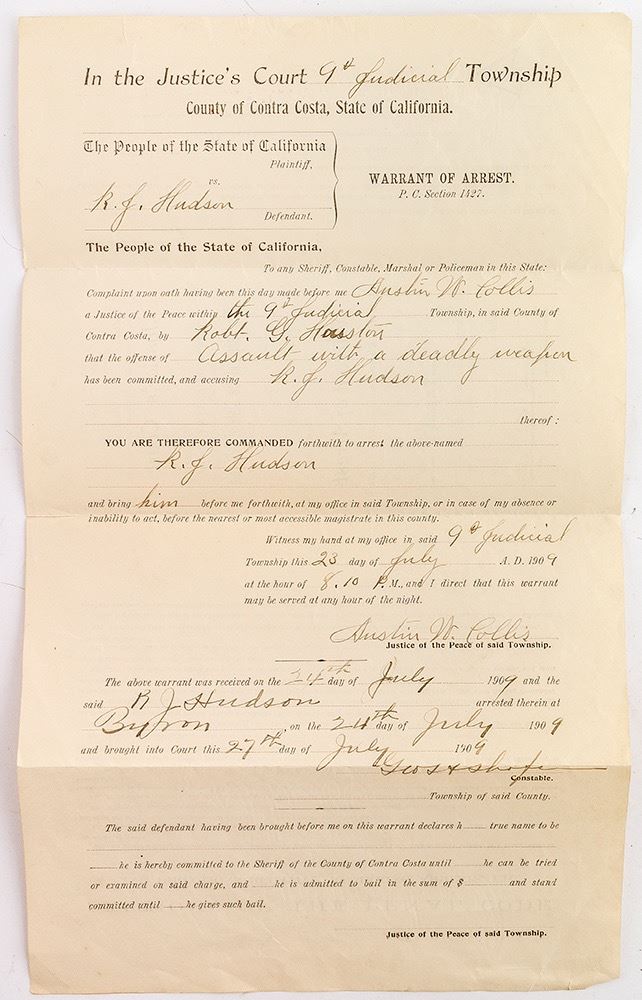 In the Justice's Court 9th Judicial Township
County of Contra Costa, State of California.
The People of the State of California
Plaintiff,
vs.
R. J. Hudson
Defendant.
WARRANT OF ARREST.
P. C. Section 1427.
The People of the State of California,
To any Sheriff, Constable, Marshal or Policeman in this State:
Complaint upon oath having been this day made before me Austin W. Collis
a Justice of the Peace within the 9th Judicial Township, in said County of
Contra Costa, by Robt. G. Houston
that the offense of Assault with a deadly weapon
has been committed, and accusing R. J. Hudson
thereof:
YOU ARE THEREFORE COMMANDED forthwith to arrest the above-named
R. J. Hudson
and bring him before me forthwith, at my office in said Township, or in case of my absence or
inability to act, before the nearest or most accessible magistrate in this county.
Witness my hand at my office in said 9th Judicial
Township this 23 day of July A. D. 1909
at the hour of 8.10 P.M., and I direct that this warrant
may be served at any hour of the night.
Austin W. Collis
Justice of the Peace of said Township.
The above warrant was received on the 24th day of July 1909 and the
said R J Hudson arrested therein at
Byron, on the 24th day of July 1909
and brought into Court this 27th day of July 1909
Constable.
Township of said County.
The said defendant having been brought before me on this warrant declares h true name to be
he is hereby committed to the Sheriff of the County of Contra Costa until he can be tried
or examined on said charge, and he is admitted to bail in the sum of $ and stand
committed until he gives such bail.
Justice of the Peace of said Township.